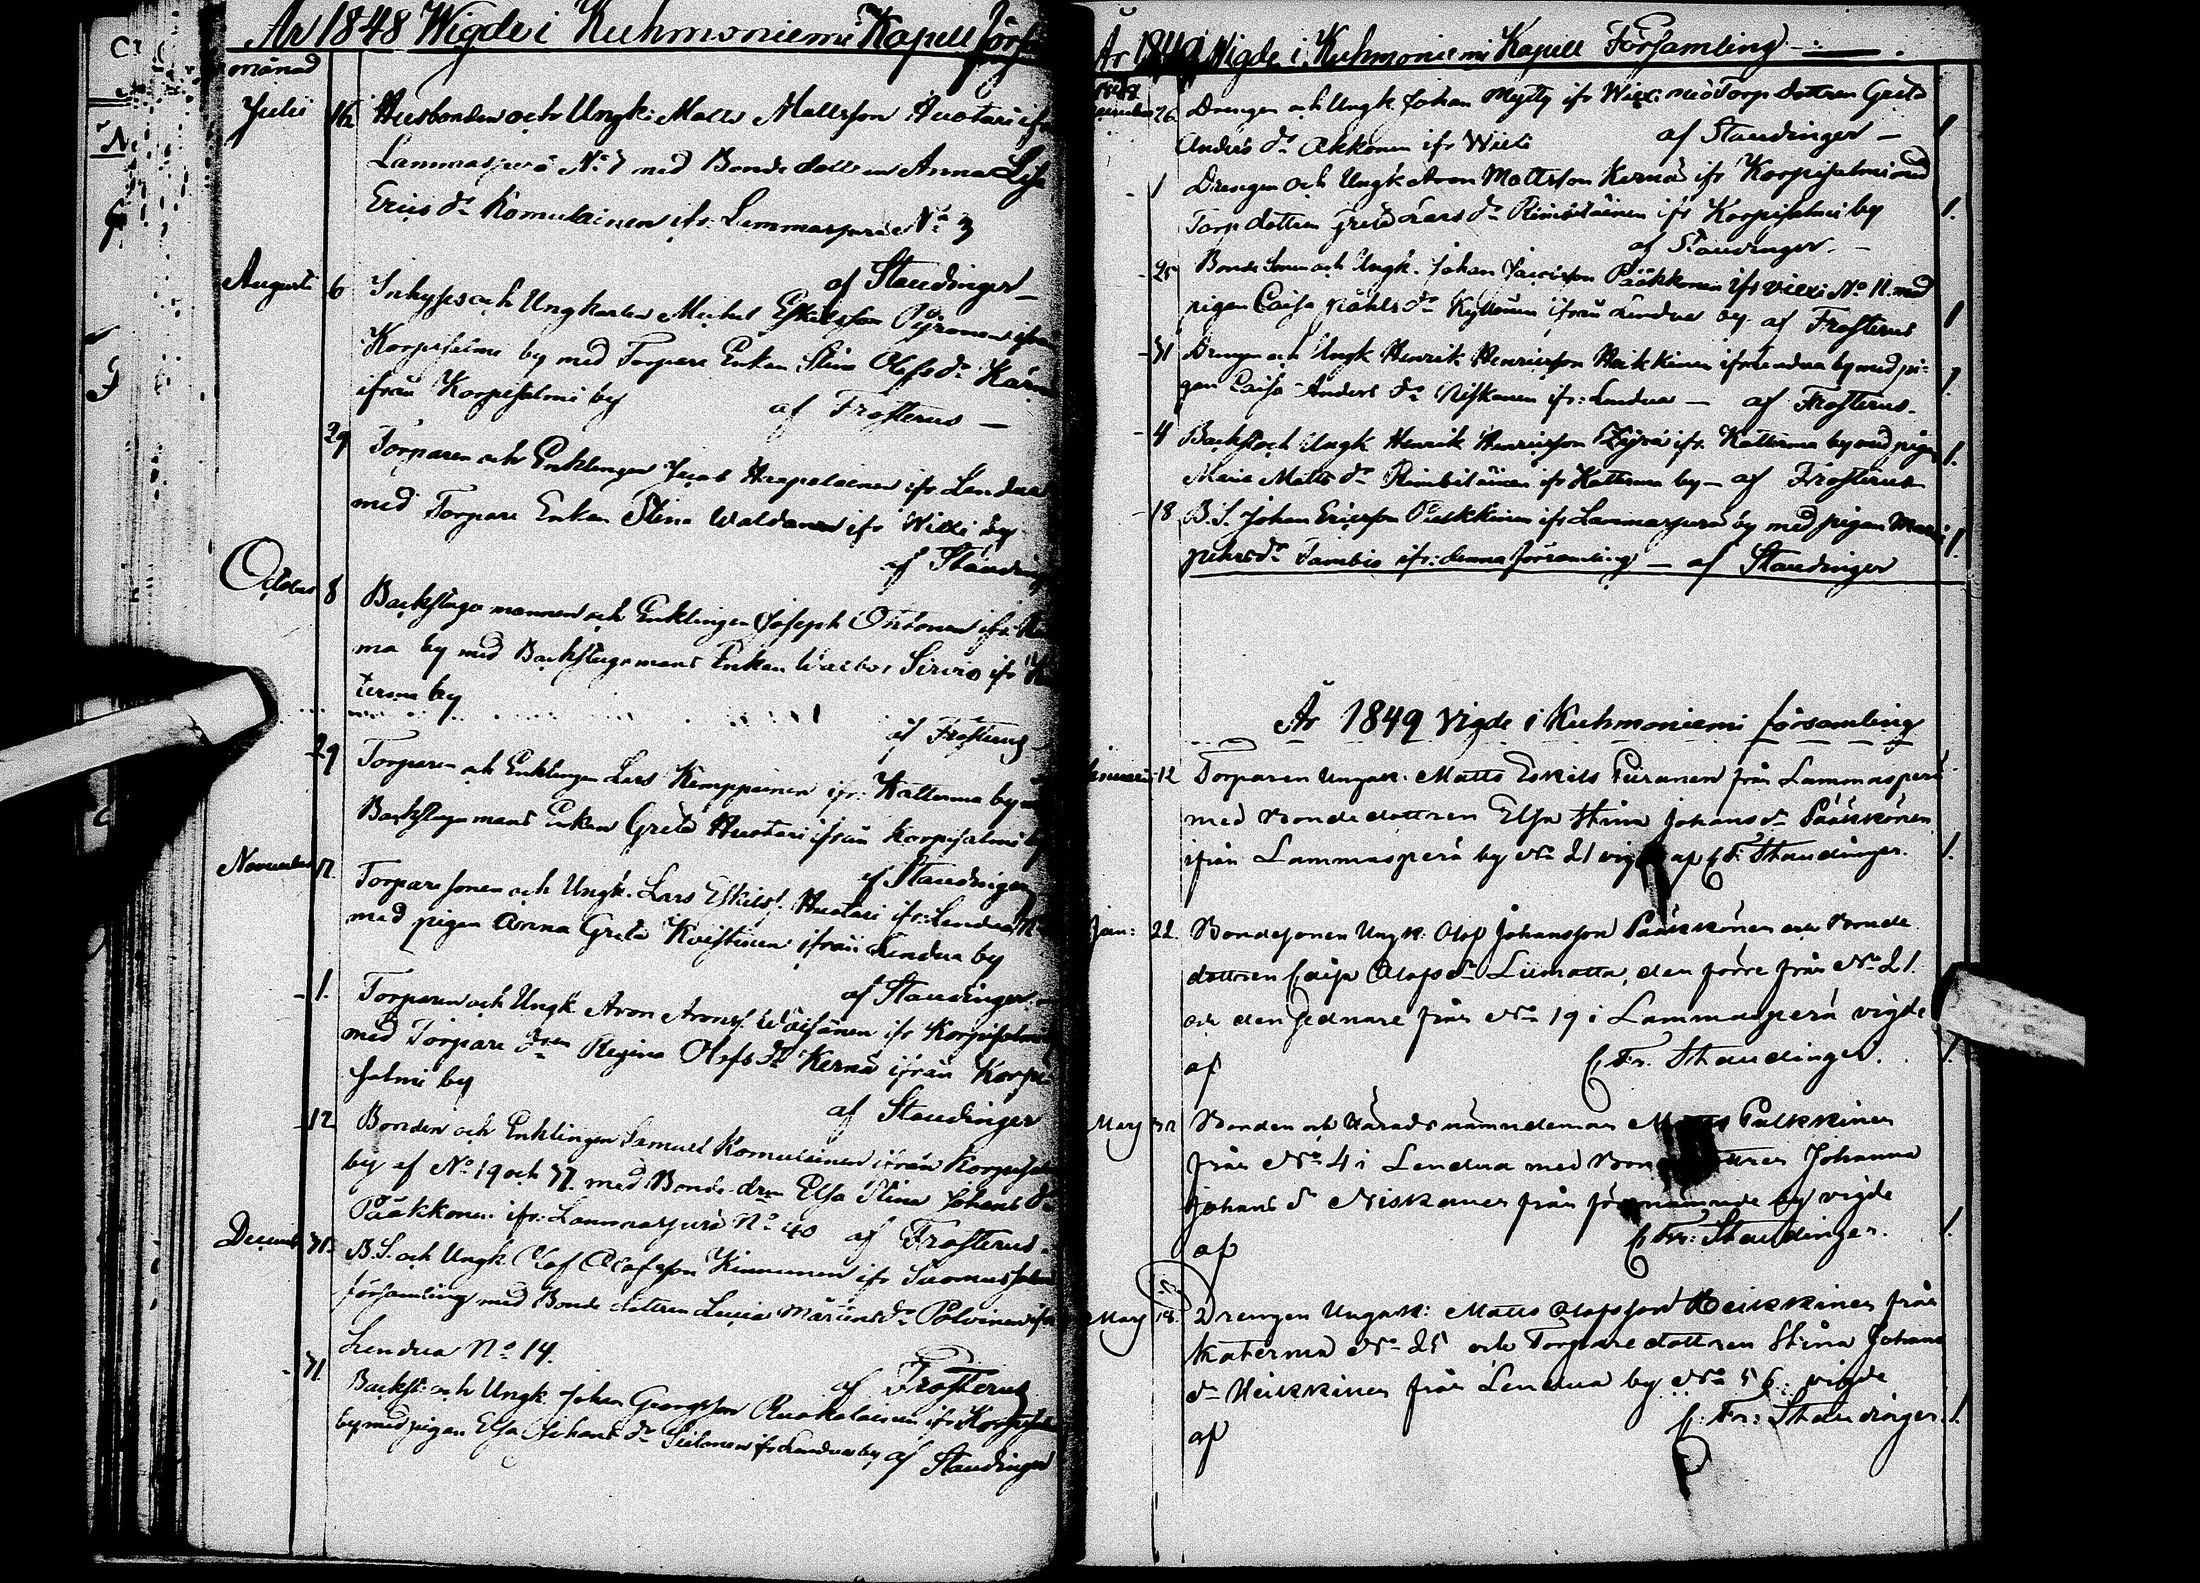 År 1848 Wigde i Kuhmoniemi Kapell Förs
månad
Julii 16 Husbonden och Ungk: Matts Mattsson Huotari ifr
Lammasperä No 7 med Bonde dottren Anna Lisa
Erics dr Komulainen ifr: Lammasperä No 3
af Staudinger
Augusti 6 Inhyses och Ungkarlen Michel Eskelsson Pyronen ifrån
Korpisalmi by med Torpare Enkan Stina Olofs dr Kärnä
ifrån Korpisalmi by af Frosterus
29 Torparen och Enklingen Jacob Haapalainen ifr Lendua
med Torpare Enkan Stina Waldanen ifr Wiexi by
af Staudinger
October 8 Backstugo mannen och Enklingen Joseph Ohtonen ifr:
ma by med Backstugomans Enkan Walbor Sirviö ifr
terma by
af Frosterus
29 Torparen och Enklingen Lars Kemppainen ifr: Katterma by
Backstugomans Enkan Greta Huotari ifrån Korpisalmi by
af Staudinger
November Torpare sonen och Ungk. Lars Eskils: Huotari ifr: Lendua
med pigan Anna Greta Kvistinen ifrån Lendua by
af Staudinger
1. Torparen och Ungk Aron Arons: Wäisänen ifr Korpisalmi
med Torpare dren Regina Olofs dr Kernä ifrån Korpi
salmi by
af Staudinger
12 Bonden och Enklingen Samuel Komulainen ifrån Korpisalmi
by af No 19 och 77. med Bonde drn Elsa Stina Johans dr
Pääkkonen ifr: Lammasperä No 40 af Frosterus
Decemb 31. B.S. och Ungk Olof Olofsson Kinnunen ifr Suomussalmi
församling med Bonde dottren Lucia Mårtens dr Polvinen ifr
Lendua No 14.
af Frosterus
31 Backst: och Ungk Johan Georgsson Ruokolainen ifr Korpisalmi
by med pigan Elsa Johans dr Piilonen ifr Lendua by af Staudinger
År 1849 Wigde i Kuhmoniemi Kapell Församling
1848
26 Drengen och Ungk. Johan Mylly ifr Wiexi med Torp dottren Greta
Anders dr Akkonen ifr Wiexi af Staudinger 1
1 Drengen och Ungk Aron Mattsson Kernä ifr Korpisalmi med
Torp dottren Greta Lars dr Rimbiläinen ifr Korpisalmi by 1.
af Staudinger
25 Bonde Sonen och Ungk. Johan Pääkkonen ifr Wiexi No 11. med
pigan Caisa Påhls dr Kyllönen ifrån Lendua by af Frosterus 1
31 Drengen och Ungk Henrik Henricsson Heikkinen ifr Lendua by med pi-
gan Caisa Anders dr Niskanen ifr: Lendua — af Frosterus. 1.
4 Backst och Ungk Henrik Henricsson ifr. Katterma by med pigan
Maria Matts dr Rimbiläinen ifr Katterma by — af Frosterus 1.
18 B.S. Johan Ericsson Pulkkinen ifr Lammasperä by med pigan Maria
Pehrs dr Tambio ifr: denna församling — af Staudinger 1.
År 1849 Vigde i Kuhmoniemi församling
Januari 12 Torparen Ungk: Matts Eskils Piiranen från Lammasperä
med Bondedottren Elsa Stina Johans dr Pääkkönen
ifrån Lammasperä by No 21 vigde af C F: Staudinger. 1.
Jan: 22. Bondesonen Ungk: Olof Johansson Pääkkönen och Bonde
dottren Caisa Olofs dr Liimatta, den förre från No 21
och den sednare från No 19 i Lammasperä vigde
af C Fr. Staudinger. 1.
Mars Bonden och Härads nämndeman Matts Pulkkinen
från No 4 i Lendua med Bondedottren Johanna
Johans dr Niskanen från förenämnde by vigde
af C Fr: Staudinger. 1.
Mars 18. Drengen Ungk: Matts Olofsson Heikkinen från
Katerma No 25 och Torpare dottren Stina Johans
dr Heikkinen från Lendua by No 56. vigde
af C. Fr: Staudinger. 1.